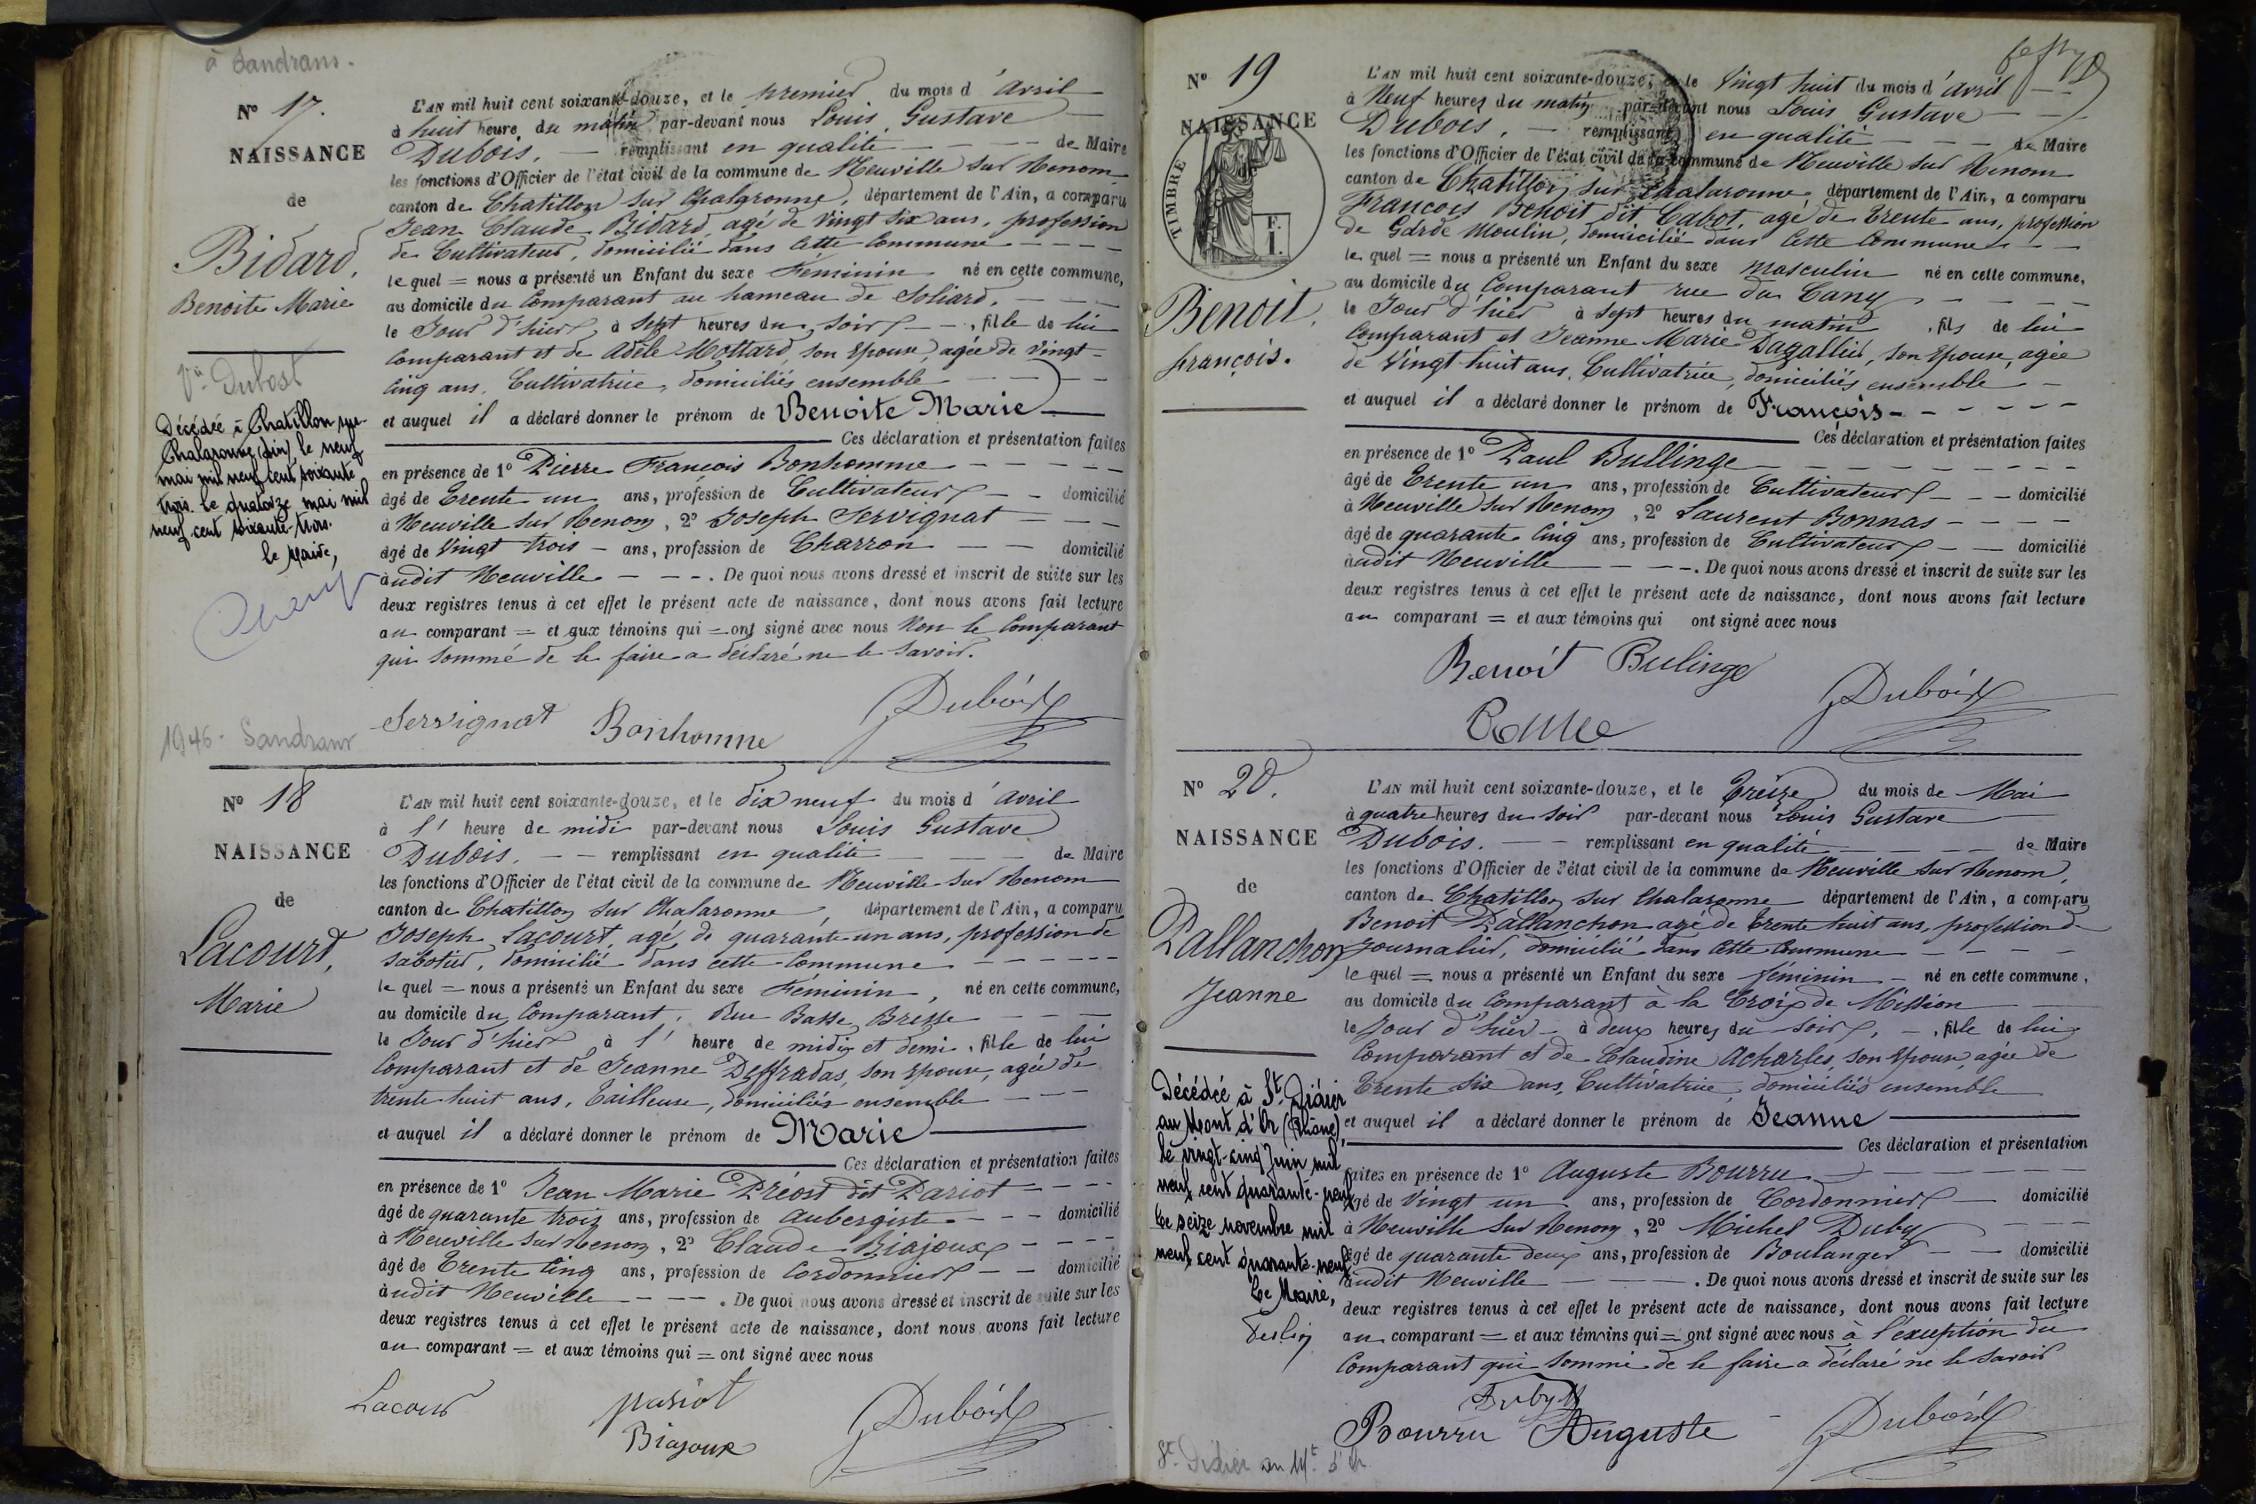 à Sandrans.
Nº 17.
NAISSANCE
de
Bidard,
Benoite Marie
Vve Dubost
Décédée à Chatillon sur
Chalaronne (Ain), le neuf
mai mil neuf cent soixante
trois. Le quatorze mai mil
neuf cent soixante-trois.
Le Maire,
1946. Sandrans
L'AN mil huit cent soixante-douze, et le premier du mois d'avril
à huit heure du matin par-devant nous Louis Gustave
Dubois. remplissant en qualité de Maire
les fonctions d'Officier de l'état civil de la commune de Neuville sur Renom
canton de Chatillon sur Chalaronne, département de l'Ain, a comparu
Jean Claude Bidard, agé de vingt six ans, profession
de Cultivateur, domicilié dans cette Commune
le quel = nous a présenté un Enfant du sexe Féminin né en cette commune,
au domicile du Comparant au hameau de Soliard.
le Jour d'hier, à sept heures du soir, fille de lui
Comparant et de Adèle Mottard, son épouse, agée de vingt-
cinq ans, Cultivatrice, domiciliés ensemble
et auquel il a déclaré donner le prénom de Benoite Marie
Ces déclaration et présentation faites
en présence de 1º Pierre François Bonhomme
âgé de Trente un ans, profession de Cultivateur domicilié
à Neuville sur Renom, 2º Joseph Servignat
âgé de Vingt trois ans, profession de Charron domicilié
àudit Neuville. De quoi nous avons dressé et inscrit de suite sur les
deux registres tenus à cet effet le présent acte de naissance, dont nous avons fait lecture
au comparant = et aux témoins qui = ont signé avec nous Non le Comparant
qui sommé de le faire a déclaré ne le savoir.
Servignat Bonhomme Dubois
Nº 18
NAISSANCE
de
Lacourt,
Marie
L'AN mil huit cent soixante-douze, et le dix neuf du mois d'avril
à l' heure de midi par-devant nous Louis Gustave
Dubois. remplissant en qualité de Maire
les fonctions d'Officier de l'état civil de la commune de Neuville sur Renom
canton de Chatillon sur Chalaronne, département de l'Ain, a comparu
Joseph Lacourt, agé de quarante un ans, profession de
sabotier, domicilié dans cette Commune
le quel = nous a présenté un Enfant du sexe Féminin, né en cette commune,
au domicile du Comparant, Rue Basse Bresse
le Jour d'hier à l' heure de midi et demi, fille de lui
Comparant et de Jeanne Deffradas, son épouse, agée de
trente huit ans, Tailleuse, domiciliés ensemble
et auquel il a déclaré donner le prénom de Marie
Ces déclaration et présentation faites
en présence de 1º Jean Marie Préost dit Pariot
âgé de quarante trois ans, profession de Aubergiste domicilié
à Neuville sur Renom, 2º Claude Biajoux
âgé de Trente Cinq ans, profession de Cordonnier domicilié
àudit Neuville. De quoi nous avons dressé et inscrit de suite sur les
deux registres tenus à cet effet le présent acte de naissance, dont nous avons fait lecture
au comparant = et aux témoins qui = ont signé avec nous
Lacour pariot Dubois
Biajoux
Nº 19
NAISSANCE
de
TIMBRE
Benoit,
françois.
L'AN mil huit cent soixante-douze, et le Vingt huit du mois d'avril
à Neuf heures du matin par-devant nous Louis Gustave
Dubois. remplissant en qualité de Maire
les fonctions d'Officier de l'état civil de la commune de Neuville sur Renom
canton de Chatillon sur Chalaronne, département de l'Ain, a comparu
François Benoit dit Cabot, agé de Trente ans, profession
de Garde Moulin, domicilié dans cette Commune
le quel = nous a présenté un Enfant du sexe masculin né en cette commune,
au domicile du Comparant rue du Cany
le Jour d'hier à sept heures du matin, fils de lui
Comparant et Jeanne Marie Dagallier, son épouse, agée
de Vingt huit ans, Cultivatrice, domiciliés ensemble
et auquel il a déclaré donner le prénom de François
Ces déclaration et présentation faites
en présence de 1º Paul Bullinge
âgé de Trente un ans, profession de Cultivateur domicilié
à Neuville sur Renom, 2º Laurent Bonnas
âgé de quarante Cinq ans, profession de Cultivateur domicilié
àudit Neuville. De quoi nous avons dressé et inscrit de suite sur les
deux registres tenus à cet effet le présent acte de naissance, dont nous avons fait lecture
au comparant = et aux témoins qui ont signé avec nous
Benoit Bulinge Dubois
Nº 20.
NAISSANCE
de
Pallanchon
Jeanne
Décédée à St. Didier
au Mont d'Or (Rhône),
le vingt-cinq Juin mil
neuf cent quarante-neuf
Le seize novembre mil
neuf cent quarante-neuf
Le Maire,
St. Didier au Mt. d'Or
L'AN mil huit cent soixante-douze, et le Treize du mois de Mai
à quatre heures du Soir par-devant nous Louis Gustave
Dubois. remplissant en qualité de Maire
les fonctions d'Officier de l'état civil de la commune de Neuville sur Renom,
canton de Chatillon sur Chalaronne département de l'Ain, a comparu
Benoit Pallanchon agé de Trente huit ans, profession de
Journalier, domicilié dans cette Commune
le quel = nous a présenté un Enfant du sexe féminin né en cette commune,
au domicile du Comparant à la Croix de Mission
le Jour d'hier à deux heures du soir, fille de lui
Comparant et de Claudine Acharles, son épouse, agée de
Trente six ans, Cultivatrice, domiciliés ensemble
et auquel il a déclaré donner le prénom de Jeanne
Ces déclaration et présentation
faites en présence de 1º Auguste Bourru
âgé de Vingt un ans, profession de Cordonnier domicilié
à Neuville sur Renom, 2º Michel Duby
âgé de quarante deux ans, profession de Boulanger domicilié
audit Neuville. De quoi nous avons dressé et inscrit de suite sur les
deux registres tenus à cet effet le présent acte de naissance, dont nous avons fait lecture
au comparant = et aux témoins qui = ont signé avec nous à l'exception du
Comparant qui sommé de le faire a déclaré ne le savoir
Duby M
Bourru Auguste Dubois